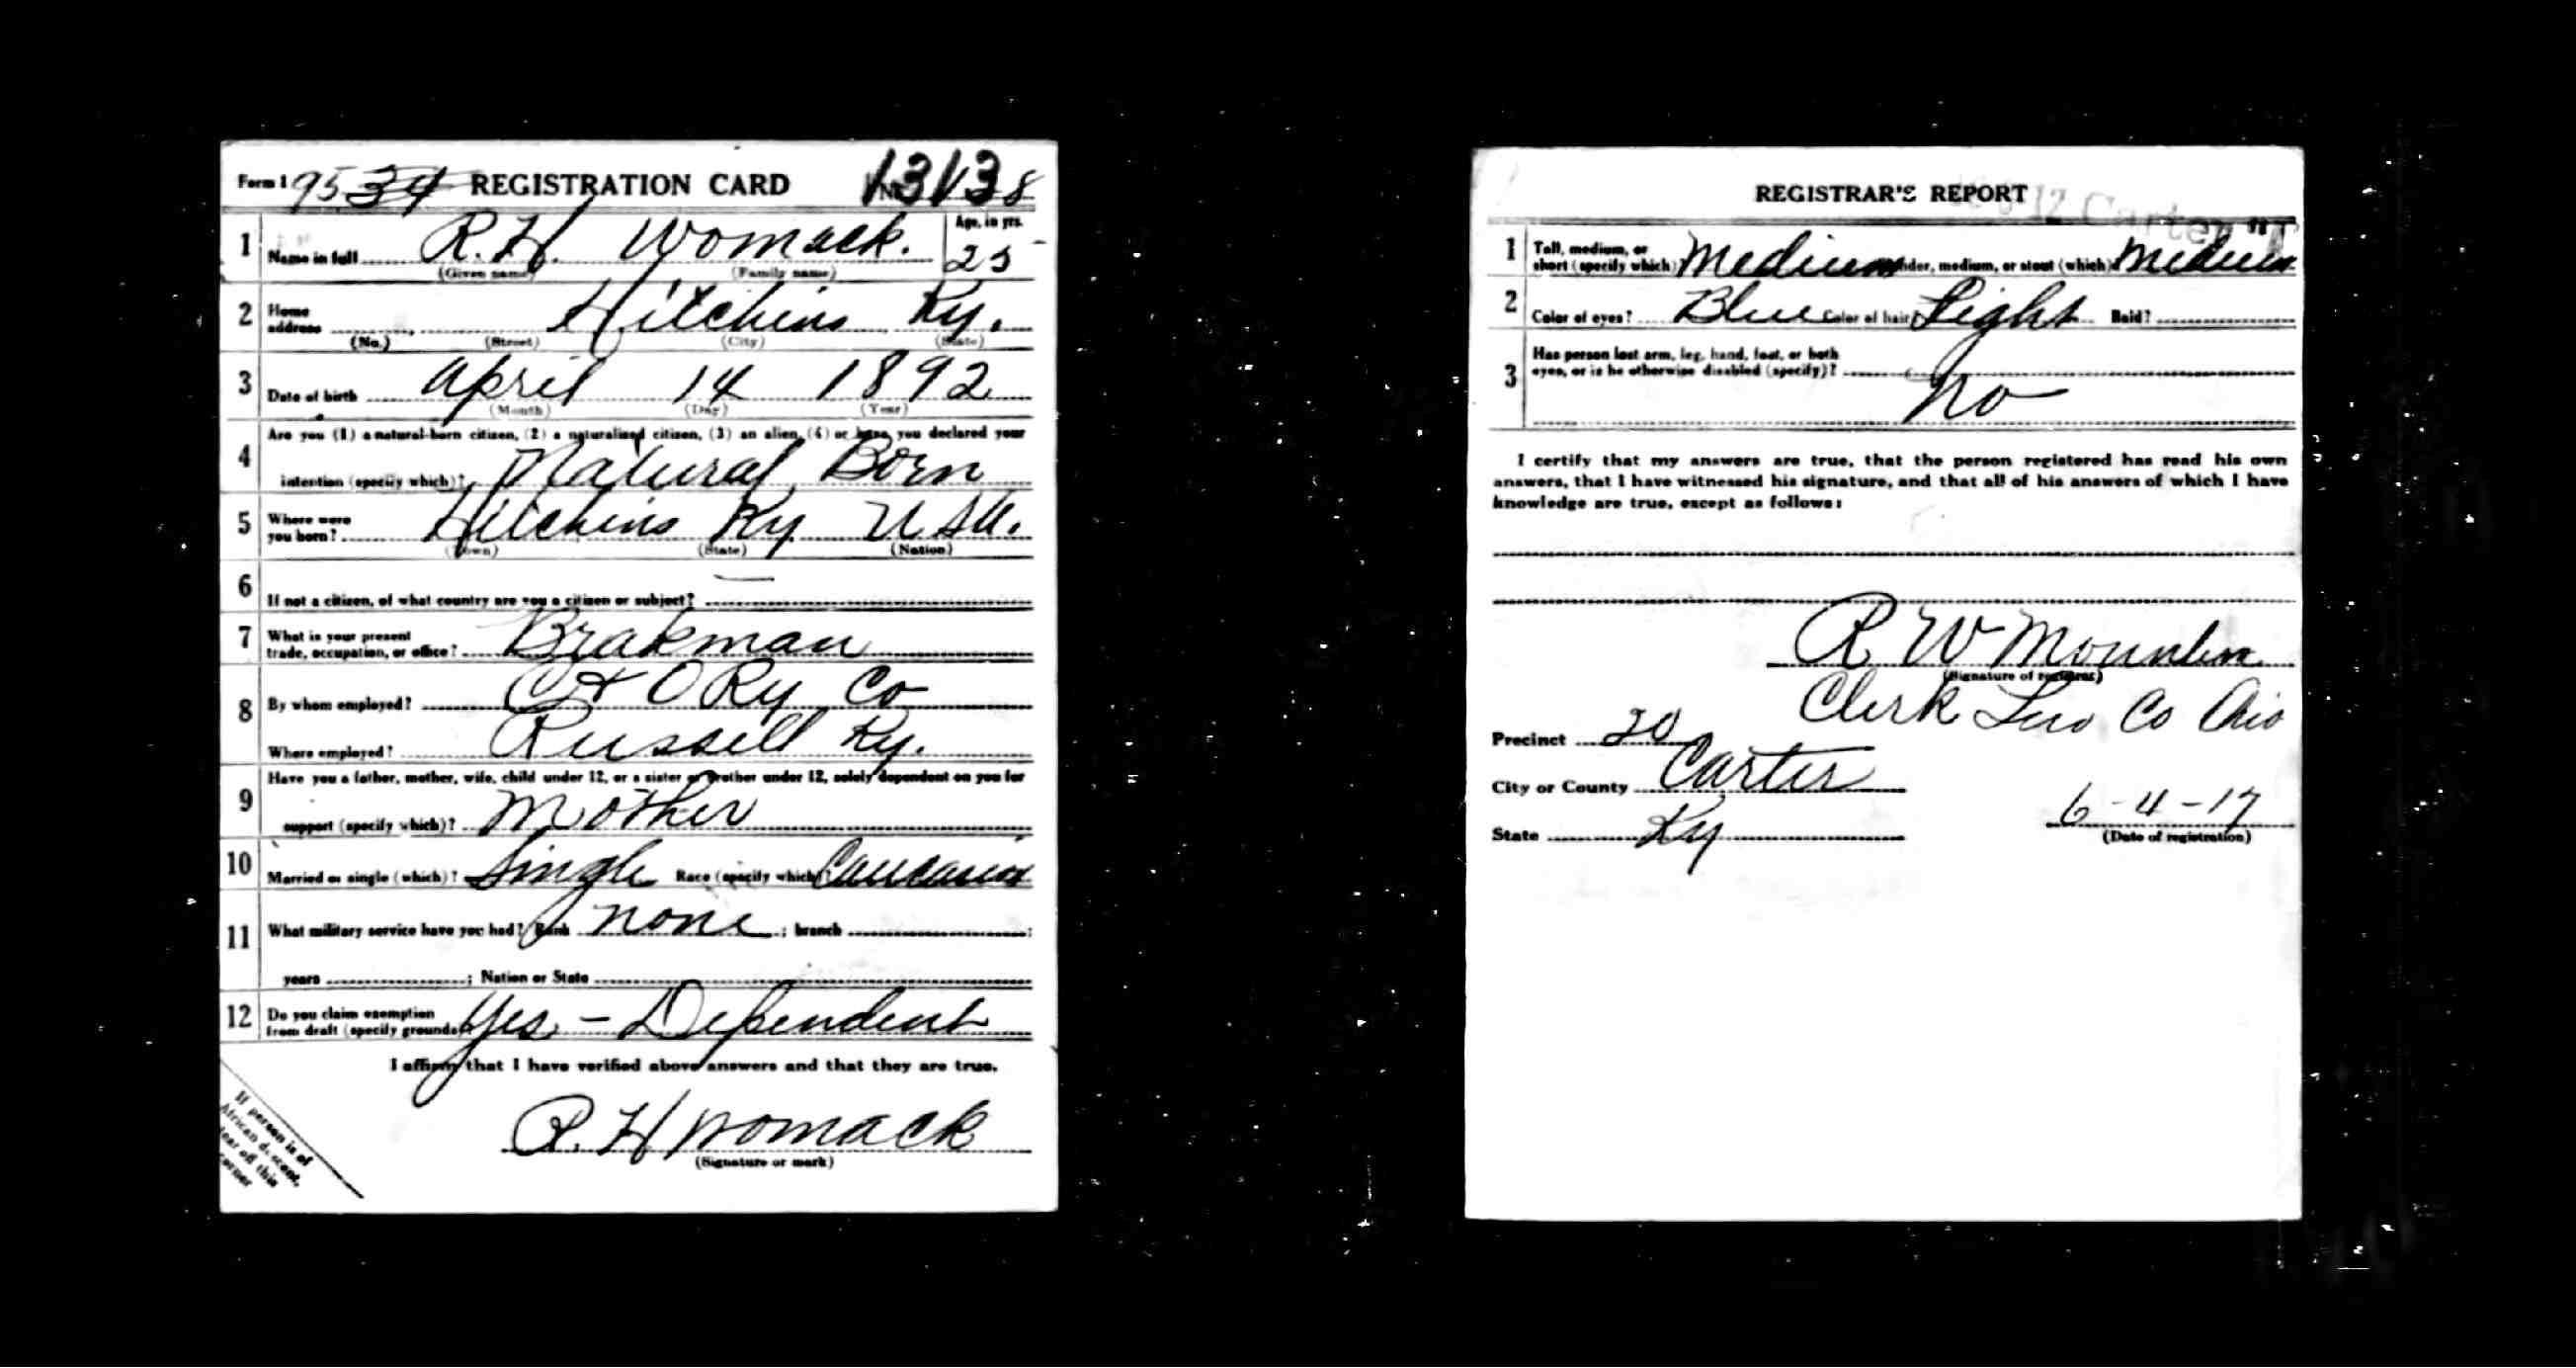 Form 1 REGISTRATION CARD
1 Name in full R. H. Womack. Age, in yrs. 25
(Given name) (Family name)
2 Home address Hitchins Ky.
(No.) (Street) (City) (State)
3 Date of birth April 14 1892
(Month) (Day) (Year)
4 Are you (1) a natural-born citizen, (2) a naturalized citizen, (3) an alien, (4) or have you declared your
intention (specify which)? Natural Born
5 Where were you born? Hitchins Ky. USA.
(Town) (State) (Nation)
6 If not a citizen, of what country are you a citizen or subject? —
7 What is your present trade, occupation, or office? Brakman
8 By whom employed? C & O Ry Co
Where employed? Russell Ky.
9 Have you a father, mother, wife, child under 12, or a sister or brother under 12, solely dependent on you for
support (specify which)? Mother
10 Married or single (which)? Single Race (specify which)? Caucasian
11 What military service have you had? Rank none ; branch ;
years ; Nation or State
12 Do you claim exemption from draft (specify grounds)? Yes - Dependent
I affirm that I have verified above answers and that they are true.
R. H Womack
(Signature or mark)
If person is of
African descent,
tear off this
corner
REGISTRAR'S REPORT
1 Tall, medium, or short (specify which)? Medium Slender, medium, or stout (which)? Medium
2 Color of eyes? Blue Color of hair? Light Bald?
3 Has person lost arm, leg, hand, foot, or both
eyes, or is he otherwise disabled (specify)?
No
I certify that my answers are true, that the person registered has read his own
answers, that I have witnessed his signature, and that all of his answers of which I have
knowledge are true, except as follows:
R W
(Signature of registrar)
Clerk Co
Precinct 20
City or County Carter
State Ky
6-4-17
(Date of registration)